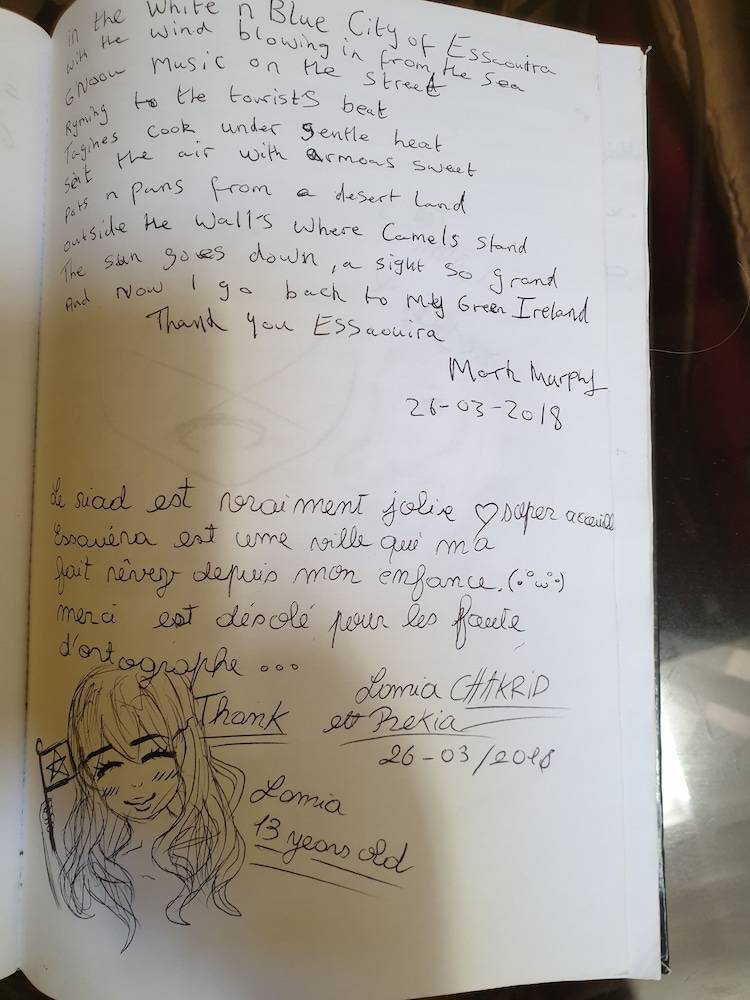 in the White n Blue City of Essaouira
with the wind blowing in from the sea
GNaou Music on the street
Ryming to the tourists beat
Tagines cook under gentle heat
sent the air with armoas sweet
Pots n pans from a desert Land
outside the Wall's where Camels stand
The sun goes down, a sight so grand
And Now I go back to My Green Ireland
Thank you ESSaouira
Mark Murphy
26-03-2018
Le riad est vraiment jolie ♡ super acceuille
Essauéra est une ville qui m'a
fait rêver depuis mon enfance. (·°ω°·)
merci est désolé pour les faute
d'ortographe ...
Thank
Lamia CHAKRID
et Rekia
26-03/2018
Lamia
13 years old